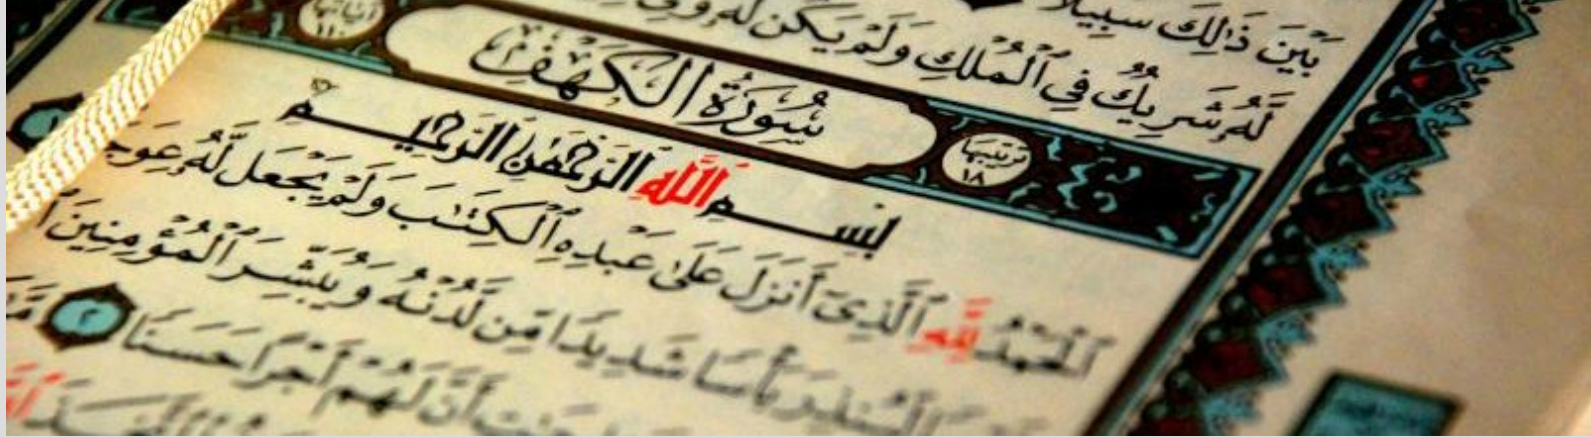 بَيْنَ ذَٰلِكَ سَبِيلًا
لَّهُ شَرِيكٌ فِي ٱلْمُلْكِ وَلَمْ يَكُن لَّهُ وَلِيٌّ
ترتيبها ١٨ سُورَةُ الكَهْفِ آياتها ١١٠
بِسْمِ اللَّهِ الرَّحْمَٰنِ الرَّحِيمِ
ٱلْحَمْدُ لِلَّهِ ٱلَّذِىٓ أَنزَلَ عَلَىٰ عَبْدِهِ ٱلْكِتَٰبَ وَلَمْ يَجْعَل لَّهُۥ عِوَجَ
لِّيُنذِرَ بَأْسًا شَدِيدًا مِّن لَّدُنْهُ وَيُبَشِّرَ ٱلْمُؤْمِنِينَ
أَنَّ لَهُمْ أَجْرًا حَسَنًا ٢